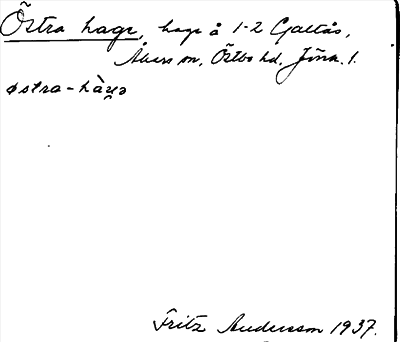 Östra hage, hage å 1-2 Galtås,
Åkers sn, Östbo hd, Jönk. l.
østra-hàɣə
Fritz Andersson 1937.